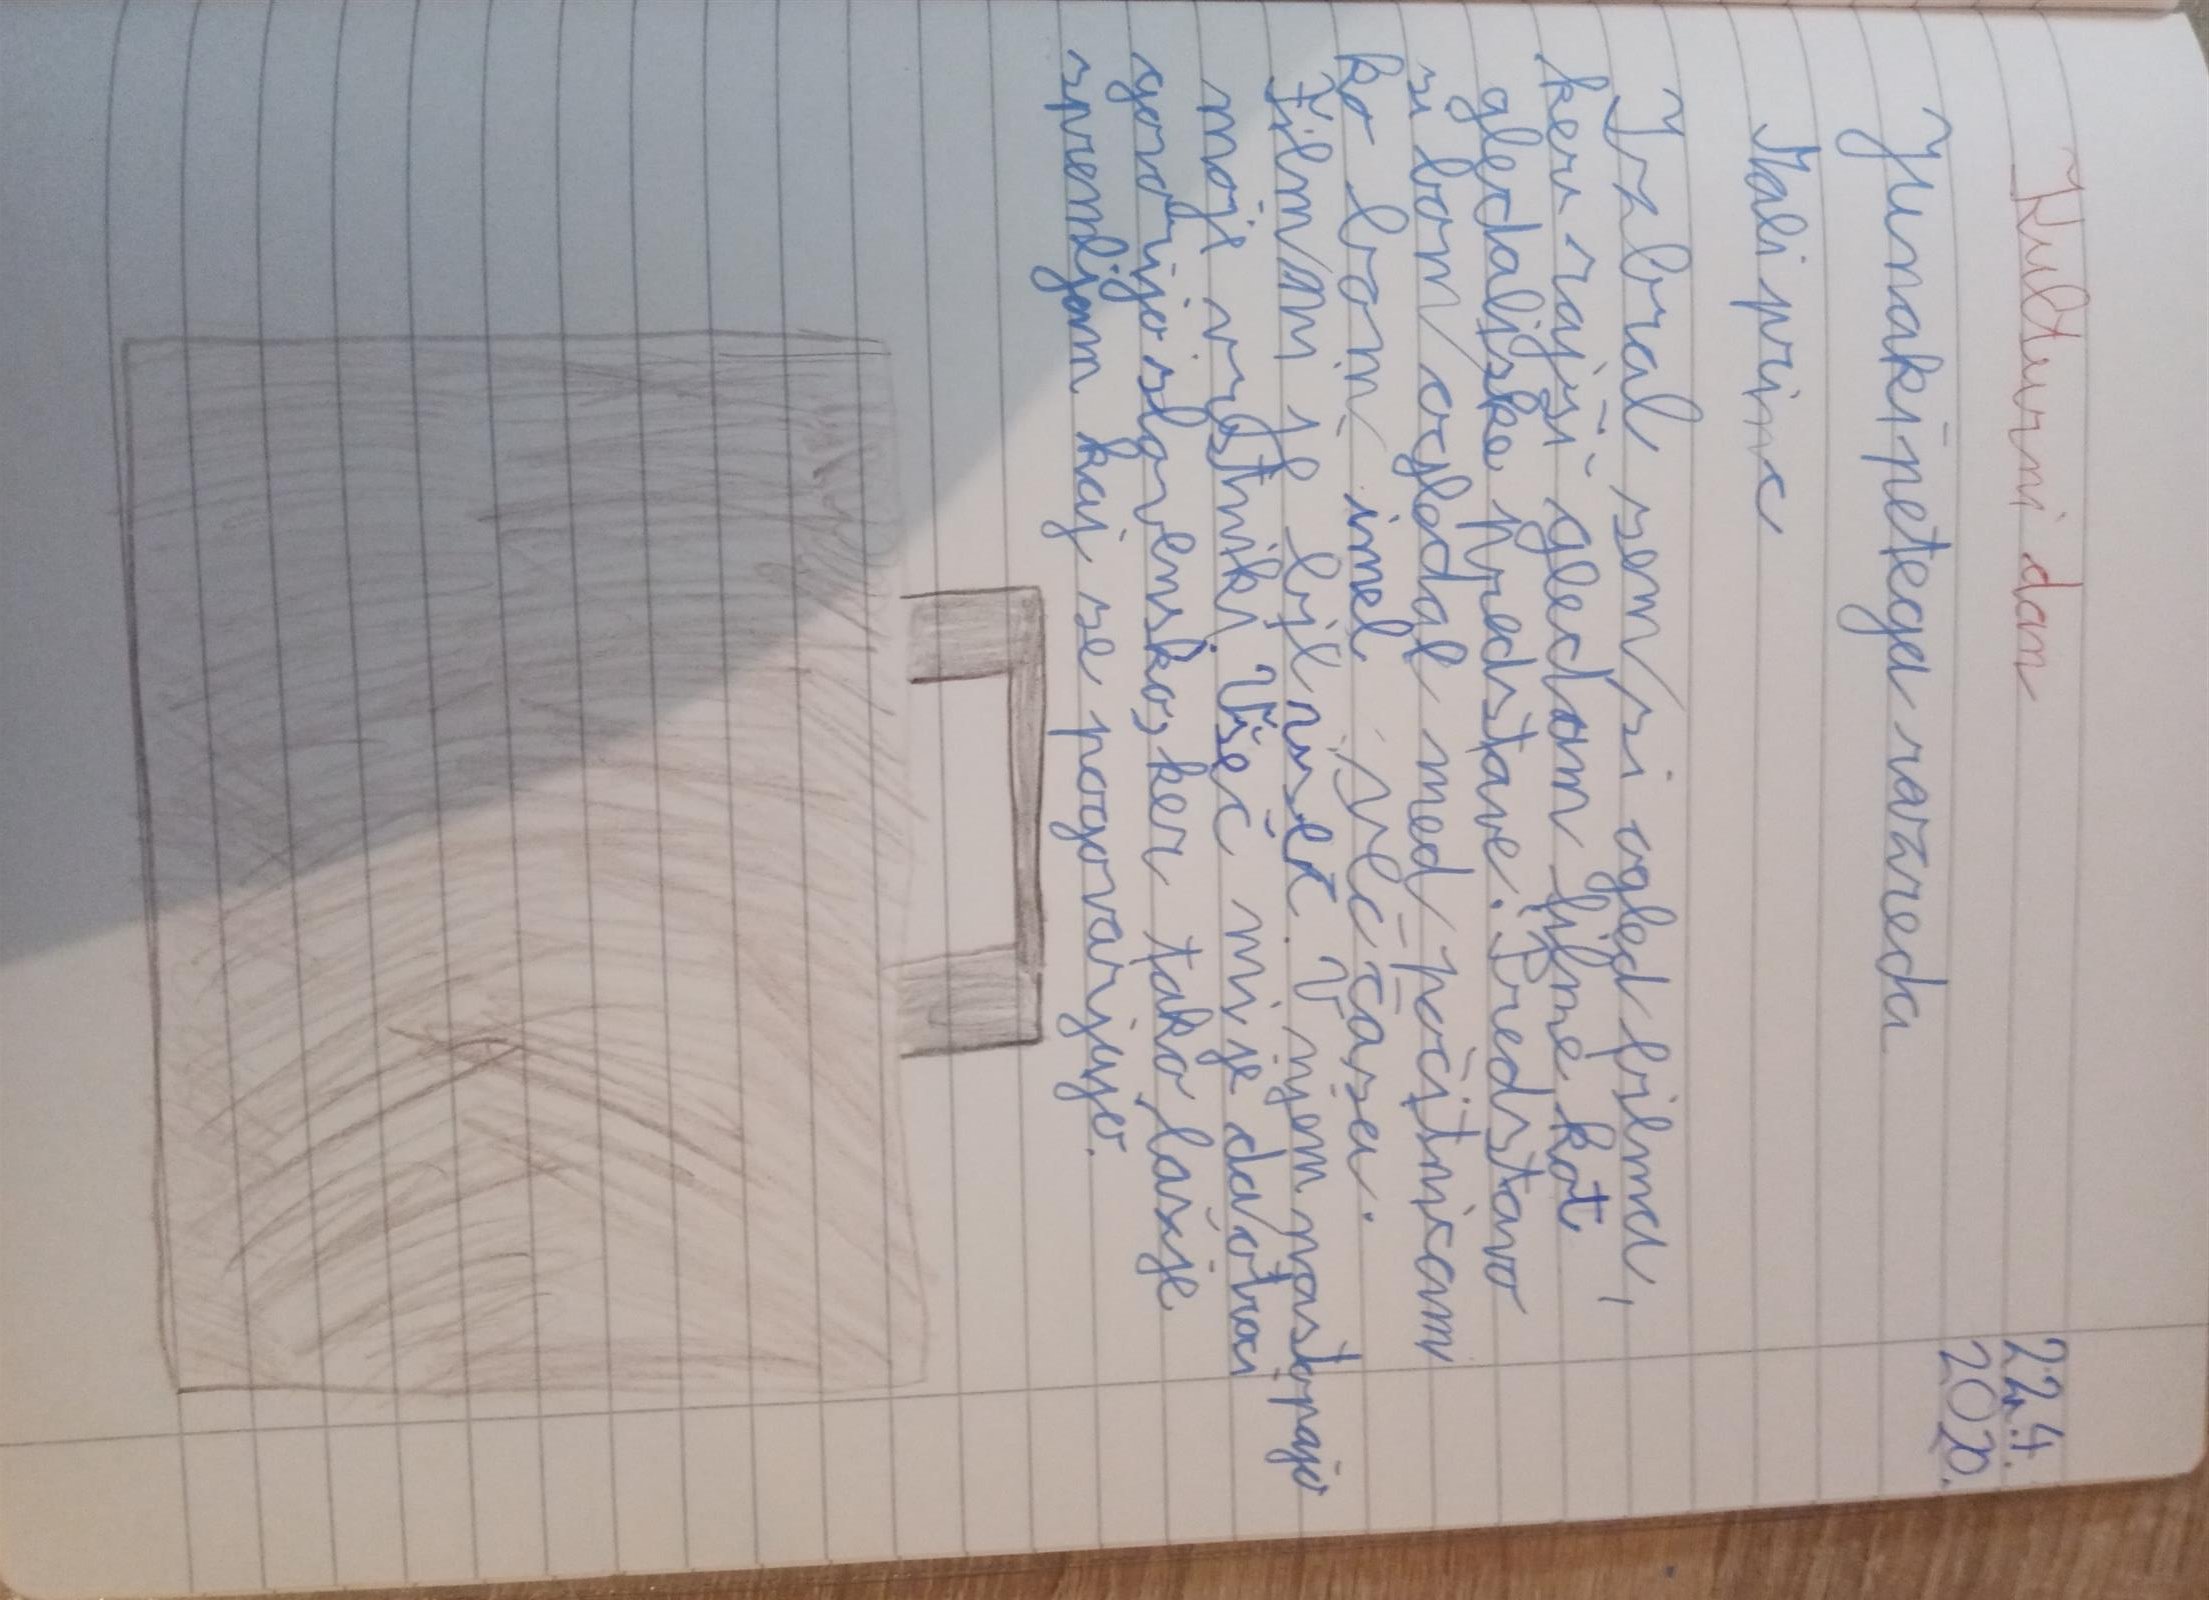 Kulturni dan
22.4.
2020.
Junaki petega razreda
Mali princ
Izbral sem si ogled filma,
ker rajši gledam filme kot
gledališke predstave. Predstavo
si bom ogledal med počitnicami
ko bom imel več časa.
Film mi je bil všeč. V njem nastopajo
moji vrstniki. Všeč mi je da otroci
govorijo slovensko, ker tako lažje
spremljam kaj se pogovarjajo.